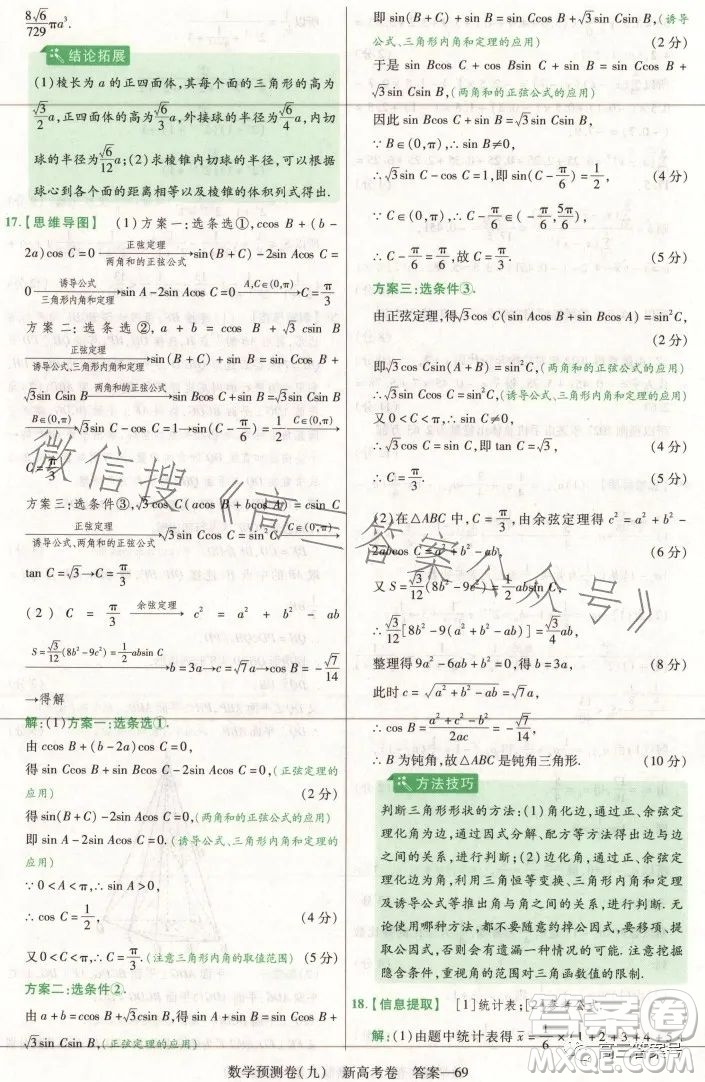 8√6/729 πa³.
结论拓展
(1)棱长为 a 的正四面体,其每个面的三角形的高为
√3/2 a,正四面体的高为√6/3 a,外接球的半径为√6/4 a,内切
球的半径为√6/12 a;(2)求棱锥内切球的半径,可以根据
球心到各个面的距离相等以及棱锥的体积列式得出.
17.【思维导图】 (1)方案一:选条选①,ccos B+(b-
2a)cos C=0 正弦定理/两角和的正弦公式→sin(B+C)-2sin Acos C=
0 诱导公式/三角形内角和定理→sin A-2sin Acos C=0 A,C∈(0,π)→C=π/3
方案二:选条选②,a+b=ccos B+√3csin B
正弦定理/诱导公式、两角和的正弦公式→sin(B+C)+sin B=sin Ccos B+
√3sin Csin B B∈(0,π)→√3sin C-cos C=1→sin(C-π/6)=1/2 C∈(0,π)→
C=π/3
方案三:选条件③,√3cos C(acos B+bcos A)=csin C
正弦定理/诱导公式、两角和的正弦公式→√3cos Csin C=sin²C C∈(0,π)→
tan C=√3→C=π/3
(2) C=π/3 余弦定理→c²=a²+b²-ab
S=√3/12(8b²-9c²)=1/2absin C→b=3a→c=√7a→cos B=-√7/14
→得解
解:(1)方案一:选条选①.
由 ccos B+(b-2a)cos C=0,
得 sin Ccos B+sin Bcos C-2sin Acos C=0,(正弦定理的
应用) (2 分)
得 sin(B+C)-2sin Acos C=0,(两角和的正弦公式的应用)
即 sin A-2sin Acos C=0.(诱导公式、三角形内角和定理的
应用)
∵0<A<π,∴sin A≠0,
∴cos C=1/2, (4 分)
又0<C<π,∴C=π/3.(注意三角形内角的取值范围) (5 分)
方案二:选条件②.
由 a+b=ccos B+√3csin B,得 sin A+sin B=sin Ccos B+
√3sin Csin B,(正弦定理的应用)
即 sin(B+C)+sin B=sin Ccos B+√3sin Csin B,(诱导
公式、三角形内角和定理的应用) (2 分)
于是 sin Bcos C+sin Ccos B+sin B=sin Ccos B+
√3sin Csin B,(两角和的正弦公式的应用)
因此 sin Bcos C+sin B=√3sin Csin B,
∵B∈(0,π),∴sin B≠0,
∴√3sin C-cos C=1,即 sin(C-π/6)=1/2, (4 分)
∵C∈(0,π),∴C-π/6∈(-π/6,5π/6),
∴C-π/6=π/6,故 C=π/3. (5 分)
方案三:选条件③.
由正弦定理,得√3cos C(sin Acos B+sin Bcos A)=sin²C,
(2 分)
即√3cos Csin(A+B)=sin²C,(两角和的正弦公式的应用)
∴√3cos Csin C=sin²C,(诱导公式、三角形内角和定理的应用)
又0<C<π,∴sin C≠0,
∴√3cos C=sin C,即 tan C=√3, (4 分)
∴C=π/3. (5 分)
(2)在△ABC 中,C=π/3,由余弦定理得 c²=a²+b²-
2abcos C=a²+b²-ab, (6 分)
又 S=√3/12(8b²-9c²)=1/2absin C,
∴√3/12[8b²-9(a²+b²-ab)]=√3/4 ab,
整理得 9a²-6ab+b²=0,得 b=3a, (8 分)
此时 c=√(a²+b²-ab)=√7a,
∴cos B=(a²+c²-b²)/2ac=-√7/14,
∴B 为钝角,故△ABC 是钝角三角形. (10 分)
方法技巧
判断三角形形状的方法:(1)角化边,通过正、余弦定
理化角为边,通过因式分解、配方等方法得出边与边
之间的关系,进行判断;(2)边化角,通过正、余弦定理
化边为角,利用三角恒等变换、三角形内角和定理及
诱导公式等推出角与角之间的关系,进行判断.无
论使用哪种方法,都不要随意约掉公因式,要移项、提
取公因式,否则会遗漏一种情况的可能.注意挖掘
隐含条件,重视角的范围对三角函数值的限制.
18.【信息提取】 [1]统计表;[2]参考公式.
解:(1)由题中统计表得 x̄=1/6×(1+2+3+4+5+
数学预测卷(九) 新高考卷 答案—69
微信搜《高三答案公众号》
答案圈
高三答案号